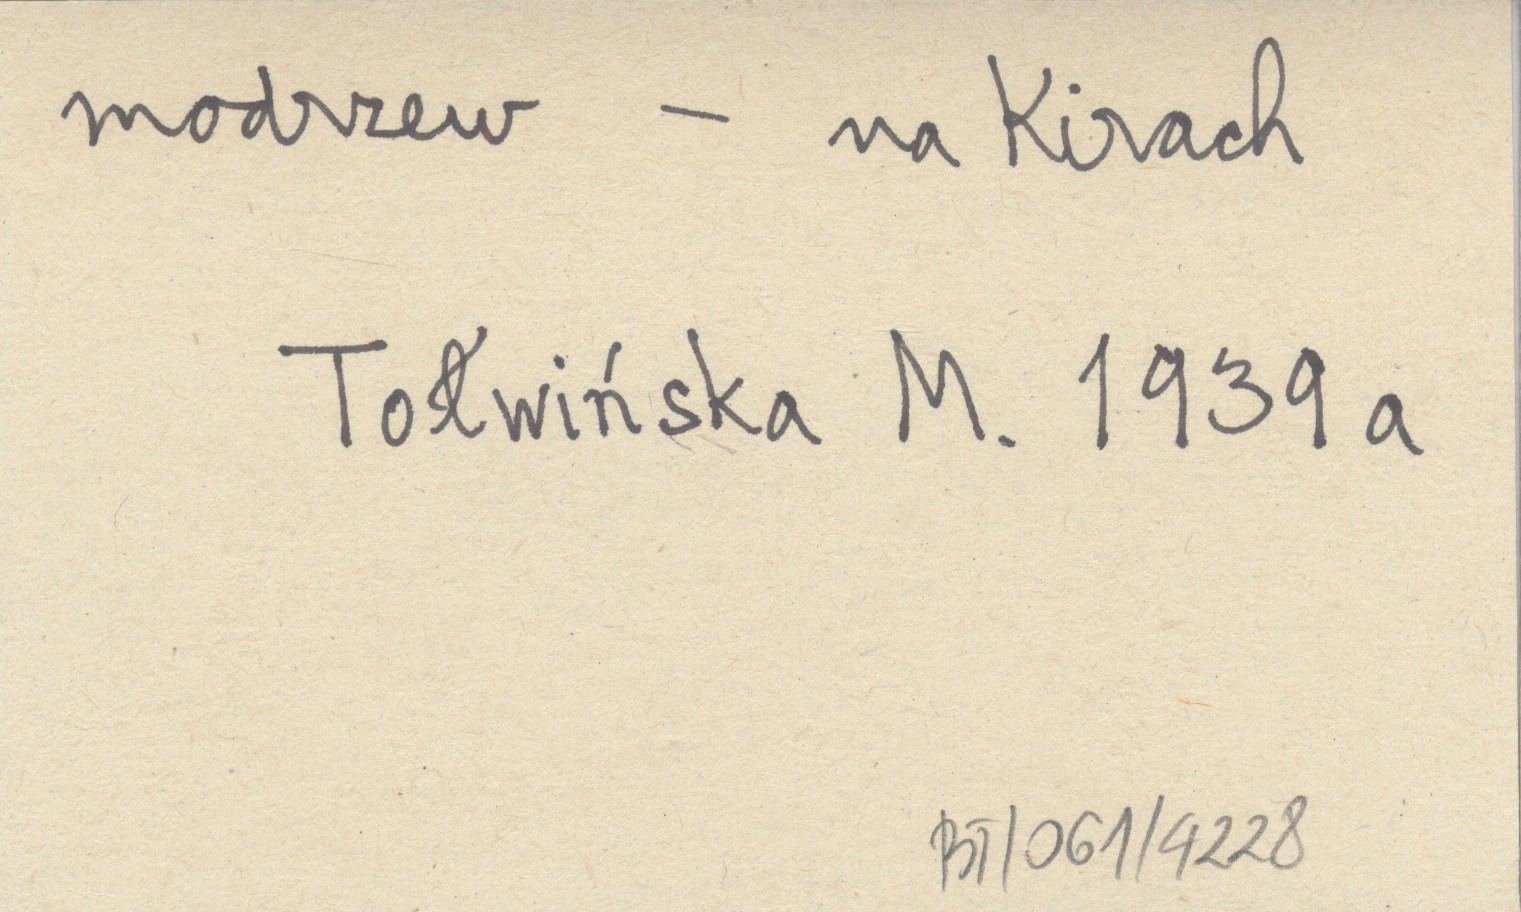 modrzew – na Kirach
Tołwińska M. 1939a
BT/061/4228